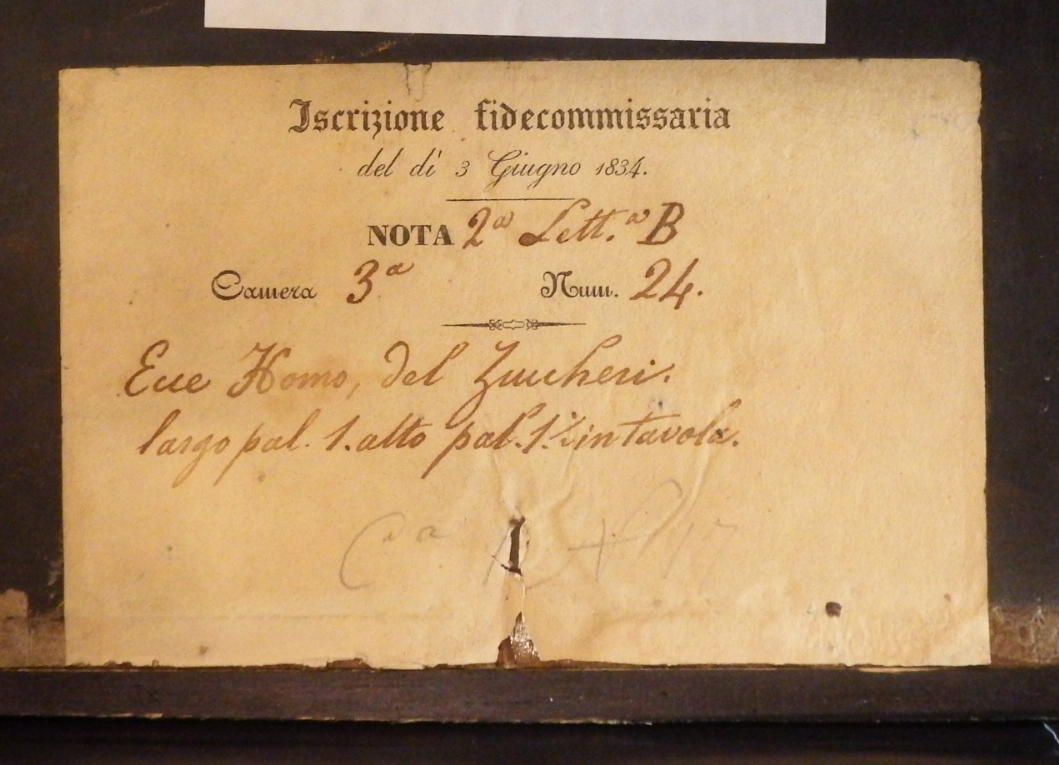 Iscrizione fidecommissaria
del dì 3 Giugno 1834.
NOTA 2ª Lett.ª B
Camera 3ª Num. 24.
Ecce Homo, del Zuccheri.
largo pal. 1. alto pal. 1.½ in tavola.